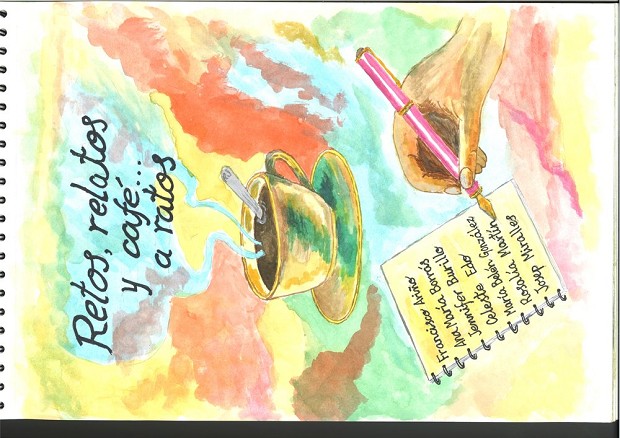 Retos, relatos
y café...
a ratos
Francisco Ariño
Ana María Borrás
Jennifer Burillo
Celeste Edo
María Belén González
Rosalía Martín
Josep Miralles